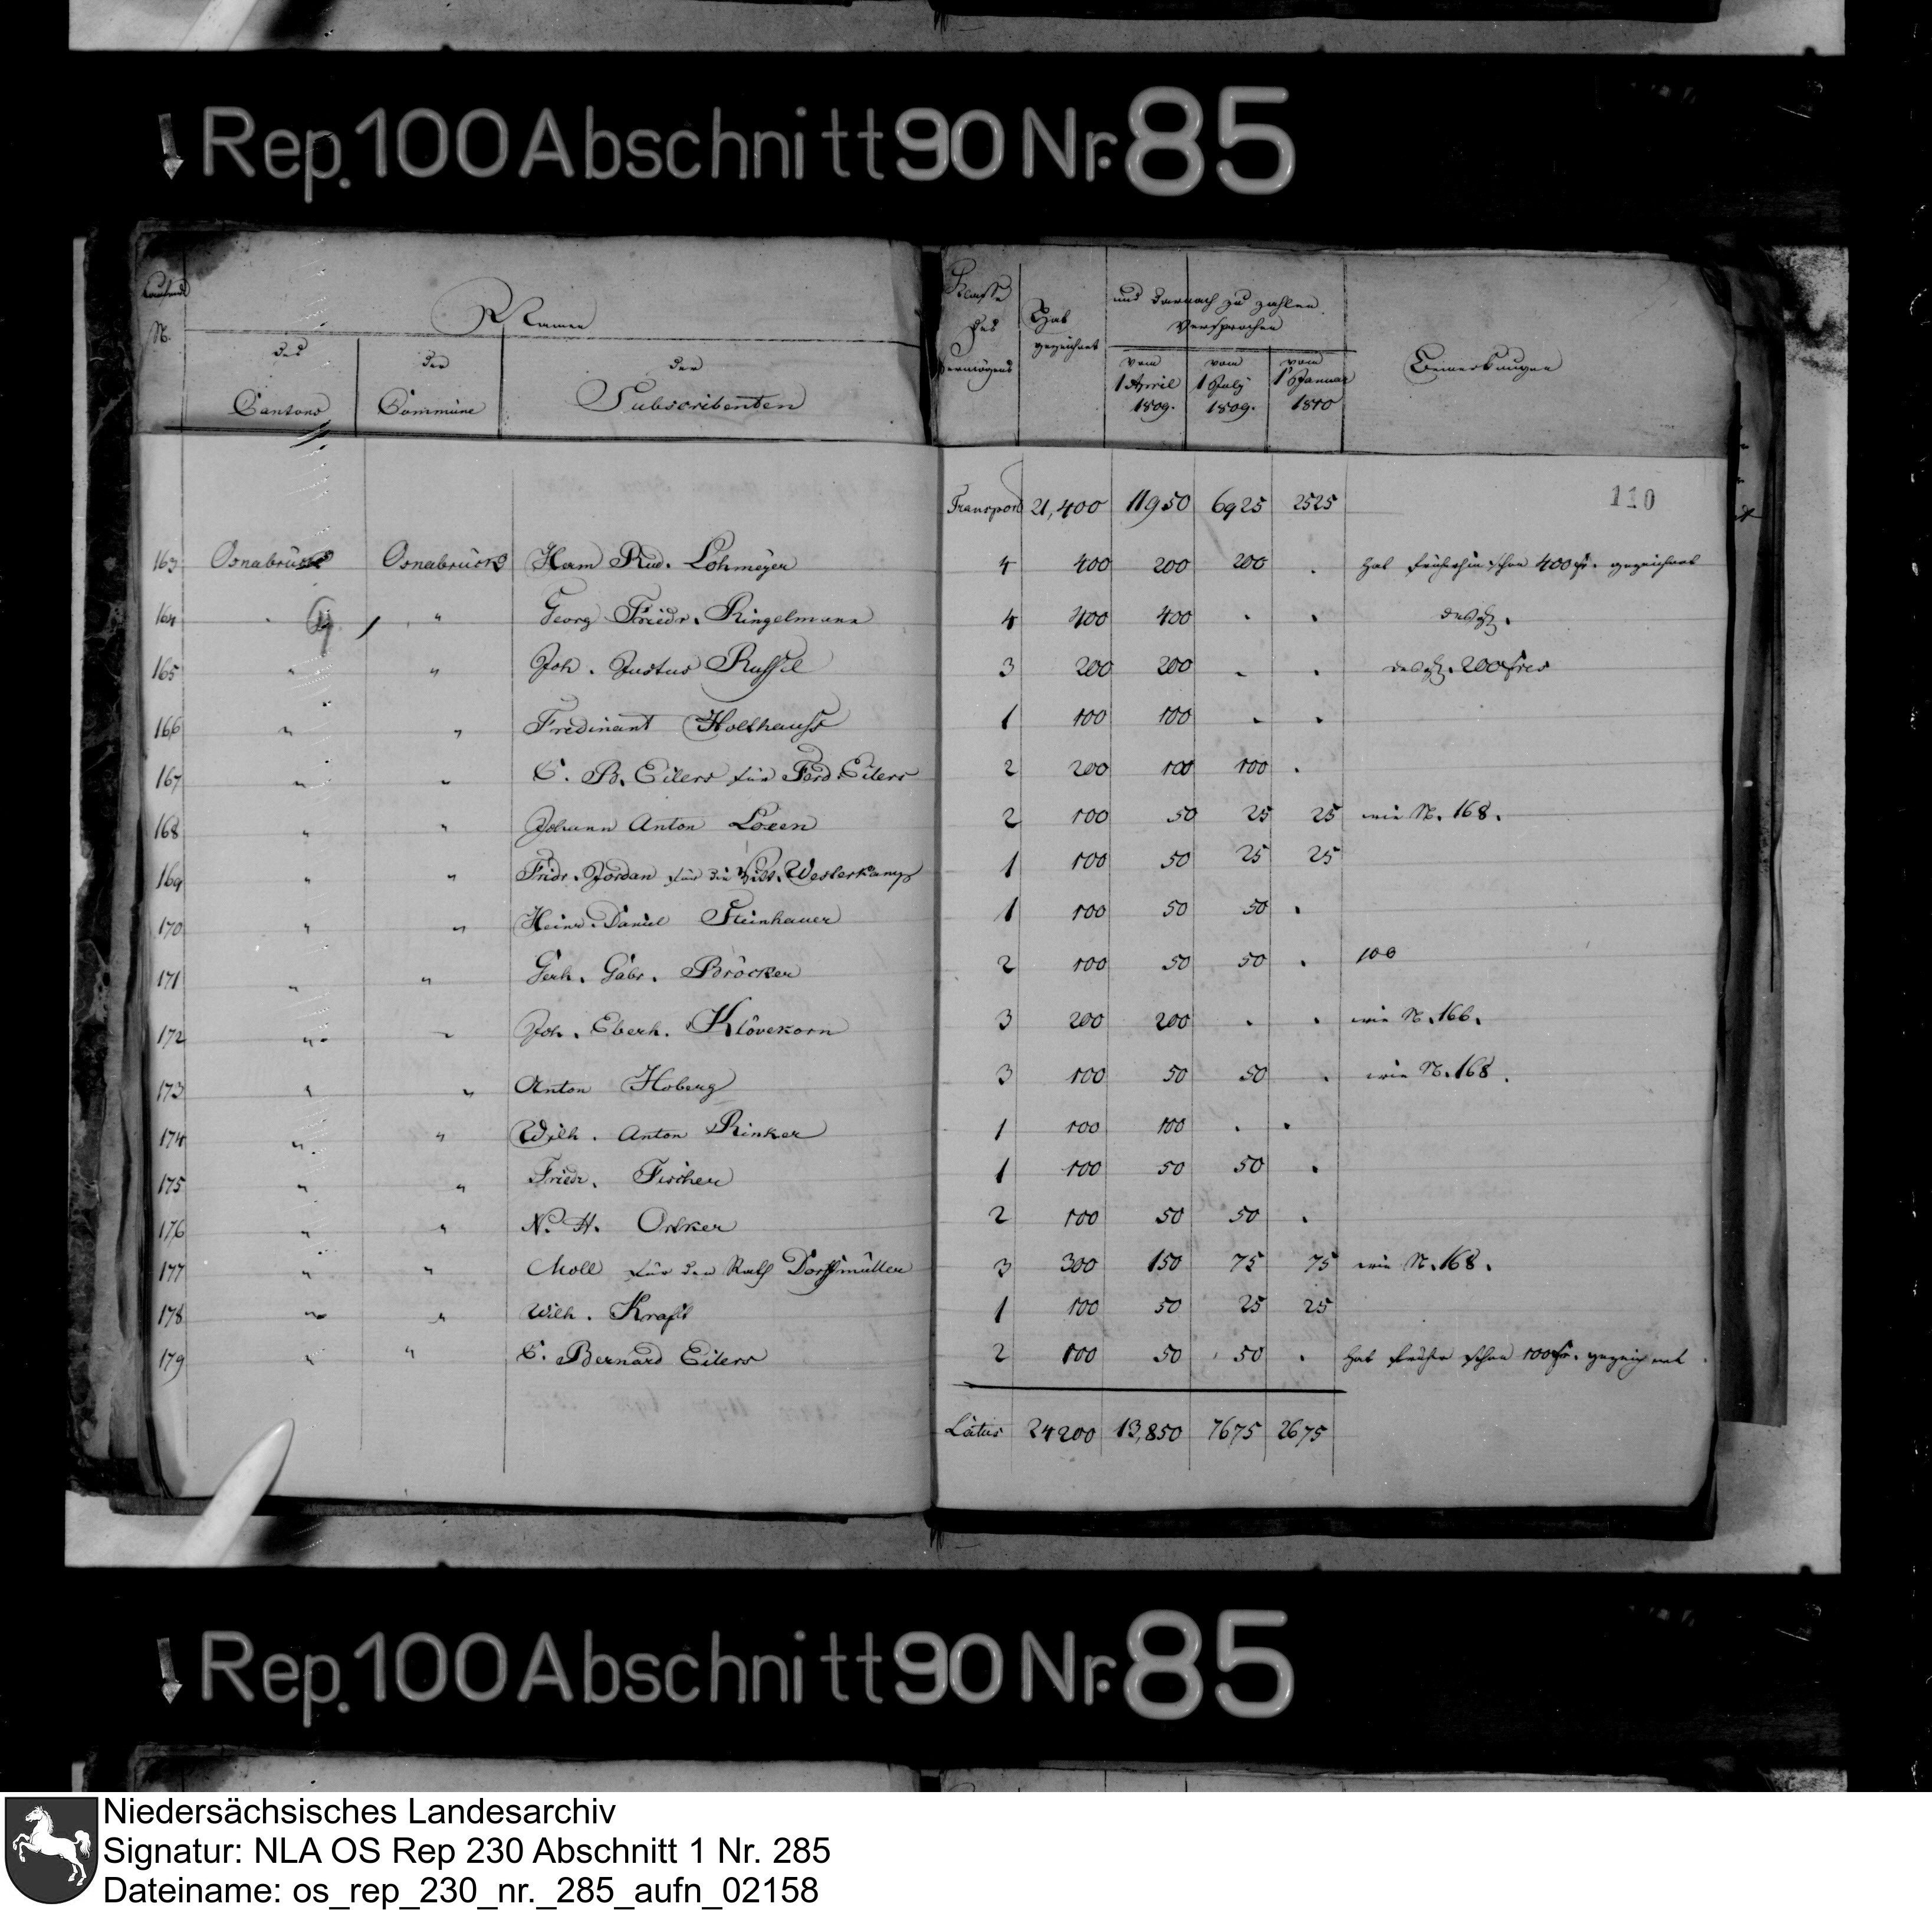 Rep. 100 Abschnitt 90 Nr. 85
Laufende N. Namen Klasse des Vermögens Hat gezeichnet und darnach zu zahlen versprochen Bemerkungen
des Cantons der Commüne der Subscribenten vom 1 April 1809. vom 1 July 1809. vom 1 Januar 1810
110
Transport 21,400 11950 6925 2525
163 Osnabrück Osnabrück Herm Rud. Lohmeyer 4 400 200 200 . hat früherhin schon 400 fr. gezeichnet
164 " " Georg Friedr. Ringelmann 4 400 400 . . desgl.
165 " " Joh. Justus Russel 3 200 200 . . desgl. 200 frcs
166 " " Fredinant Holthauss 1 100 100 . .
167 " " C. B. Eilers für Ferd. Eilers 2 200 100 100 .
168 " " Johann Anton Loxen 2 100 50 25 25 wie N. 168.
169 " " Fridr. Jordan für die Westerkamp 1 100 50 25 25
170 " " Heinr. Daniel Steinhauer 1 100 50 50 .
171 " " Gerh. Gabr. Bröcker 2 100 50 50 . 100
172 " " Joh. Eberh. Klövekorn 3 200 200 . . wie N. 166.
173 " " Anton Hoberg 3 100 50 50 . wie N. 168.
174 " " Wilh. Anton Rinker 1 100 100 . .
175 " " Friedr. Fischer 1 100 50 50 .
176 " " N. H. 2 100 50 50 .
177 " " Moll für den Rath Dorffmüller 3 300 150 75 75 wie N. 168.
178 " " Wilh. Kraft 1 100 50 25 25
179 " " C. Bernard Eilers 2 100 50 50 . hat früher schon 100 fr. gezeichnet
Latus 24200 13,850 7675 2675
Rep. 100 Abschnitt 90 Nr. 85
Niedersächsisches Landesarchiv
Signatur: NLA OS Rep 230 Abschnitt 1 Nr. 285
Dateiname: os_rep_230_nr._285_aufn_02158